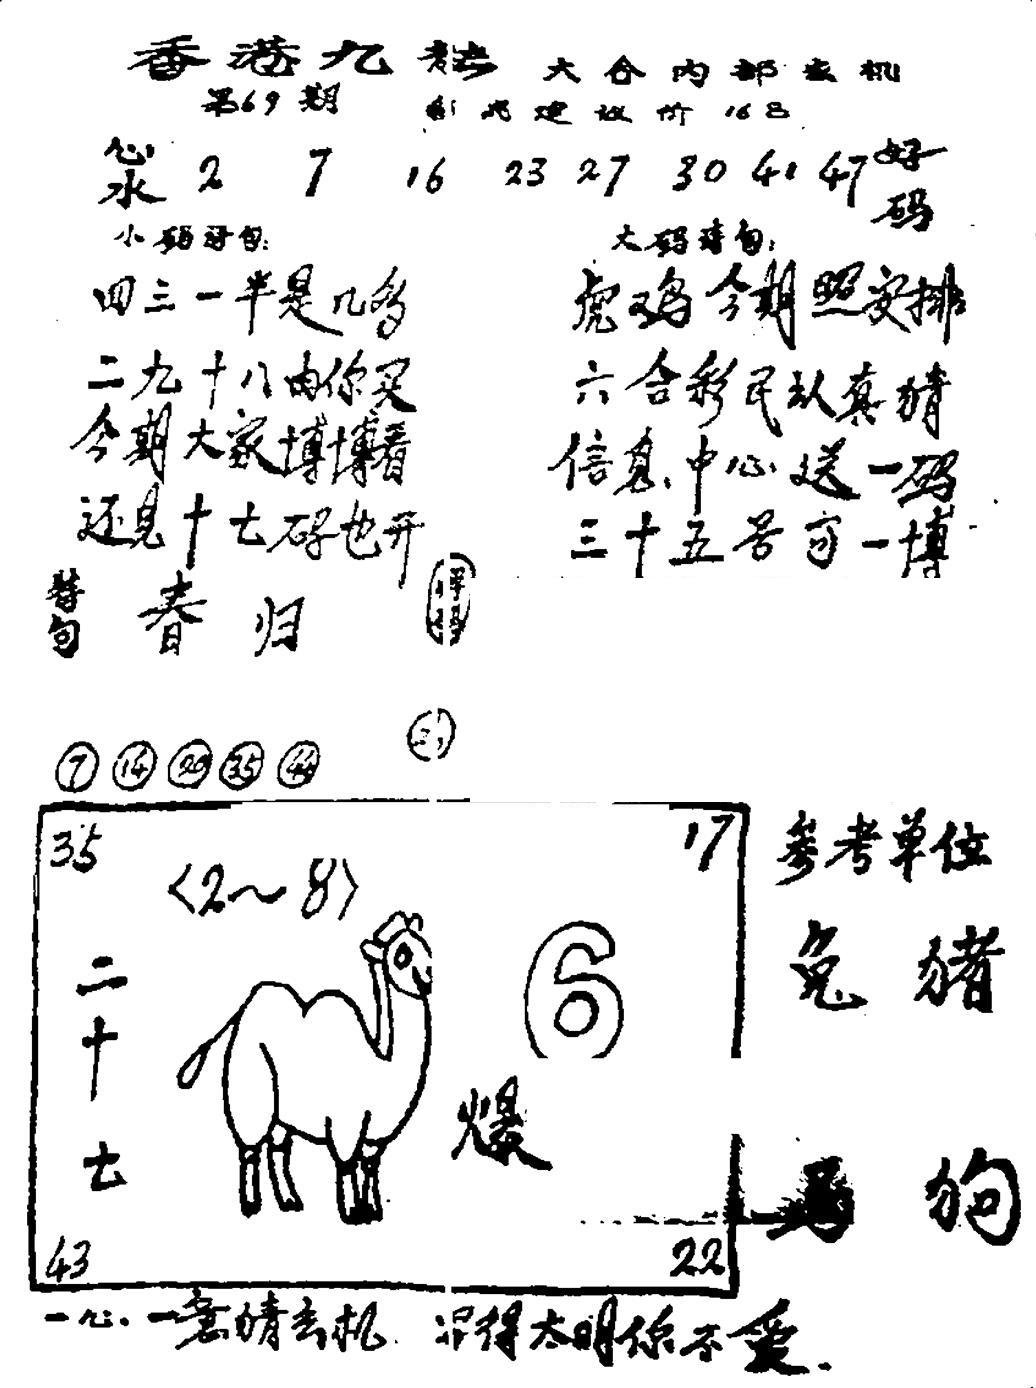 香港九龙 六合内部玄机
第69期 彩民建议价 168
心水 2 7 16 23 27 30 41 47 好码
小码诗句: 大码诗句:
四三一半是几多 虎鸡今期照安排
二九十八由你买 六合彩民认真猜
今期大家博博看 信息中心送一码
还见十七码也开 三十五号可一博
诗句 春归
7 14 35 44
35 17 参考单位
〈2~8〉
6
兔 猪
二十七
爆
马 狗
43 22
一心一意猜玄机 讲得太明你不爱.